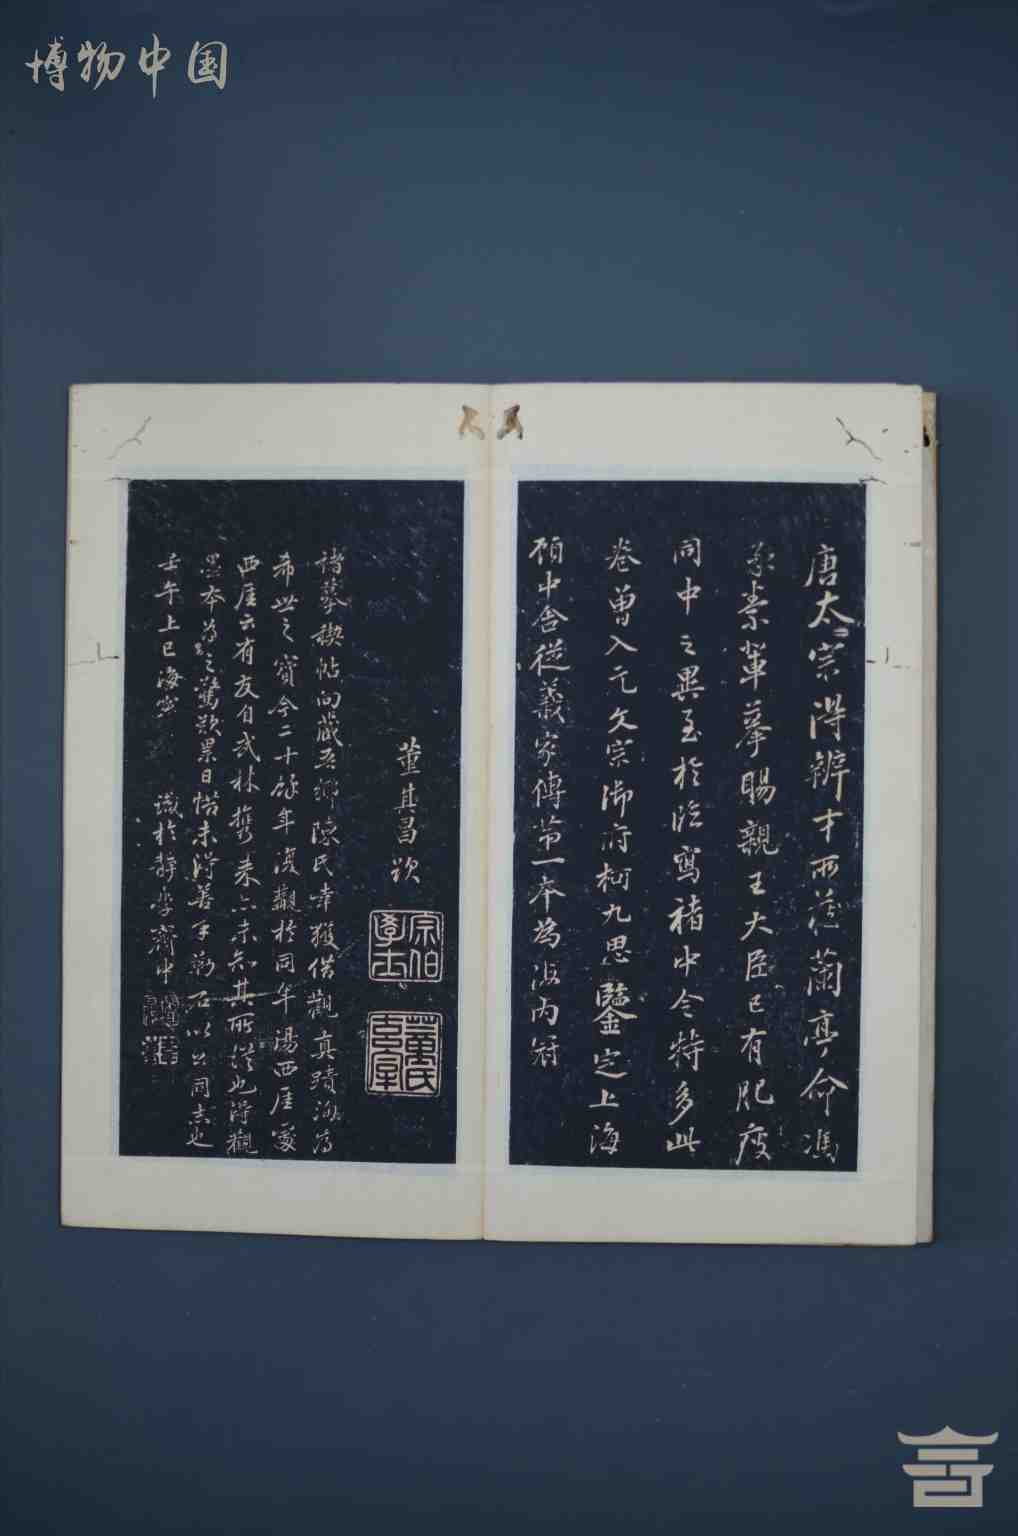 博物中国
唐太宗得辨才所藏蘭亭命馮
承素輩摹賜親王大臣已有肥瘦
同中之異至於臨寫褚中令特多此
卷曾入元文宗御府柯九思鑒定上海
顧中舍從義家傳第一本為海内冠
董其昌
宗伯學士
董氏玄宰
褚摹禊帖向藏吾鄉陳氏幸獲借觀真蹟洵為
希世之寶今二十餘年復觀於同年湯西厓
西厓云有友自武林携来亦未知其所從也得觀
墨本為之驚歎累日惜未得善手勒石以公同志也
壬午上巳海寧 識於静學齋中